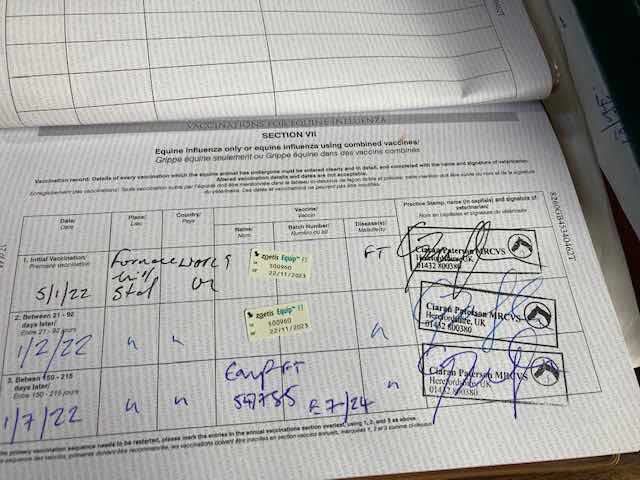 VACCINATIONS FOR EQUINE INFLUENZA
SECTION VII
Equine influenza only or equine influenza using combined vaccines/
Grippe équine seulement ou Grippe équine dans des vaccins combinés
Vaccination record: Details of every vaccination which the equine animal has undergone must be entered clearly and in detail, and completed with the name and signature of veterinarian.
Altered vaccination details and dates are not acceptable.
Date/
Date
Place/
Lieu
Country/
Pays
Vaccine/
Vaccin
Name/
Nom
Batch Number/
Numéro du lot
Disease(s)/
Maladie(s)
Practice Stamp, name (in capitals) and signature of
veterinarian/
Nom en capitales et signature du vétérinaire
1. Initial Vaccination/
Première vaccination
5/1/22
zoetis Equip FT
500960
22/11/2023
FT
Ciaran Paterson MRCVS
Herefordshire, UK
01432 800380
2. Between 21 - 92
days later/
Entre 21 - 92 jours
1/2/22
zoetis Equip FT
500960
22/11/2023
Ciaran Paterson MRCVS
Herefordshire, UK
01432 800380
3. Between 150 - 215
days later/
Entre 150 - 215 jours
1/7/22
Equip FT
E 7/24
Ciaran Paterson MRCVS
Herefordshire, UK
01432 800380
primary vaccination sequence needs to be restarted, please mark the entries in the annual vaccinations section overleaf, using 1, 2, and 3 as above.